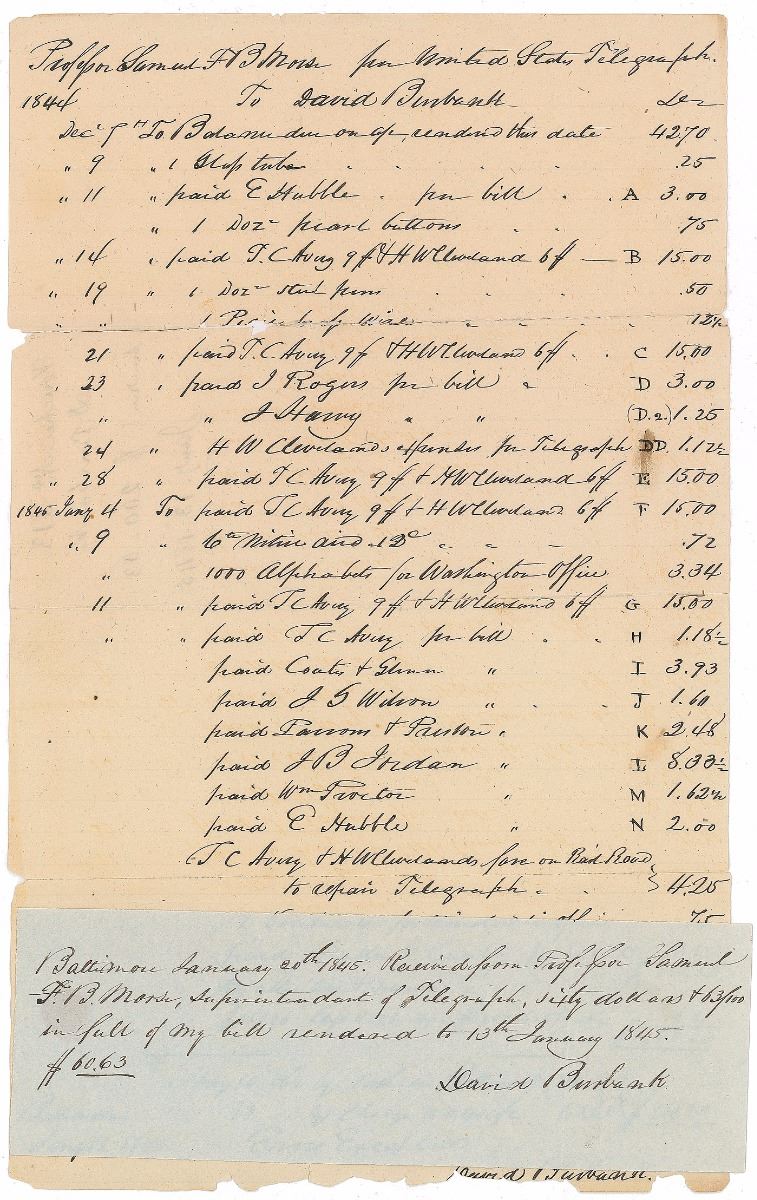 Professor Samuel F B Morse per United States Telegraph.
1844 To David Burbank Dr
Decr 7th To Balance due on a/c, rendered this date 42.70
" 9 " 1 Glass tube .25
" 11 " paid E Hubble per bill A 3.00
" 1 Dozn pearl buttons 75
" 14 " paid T. C Avery 9 $ & H W Cleveland 6 $ — B 15.00
" 19 " 1 Dozn steel pens .50
" " 1 of Wire 12½
21 " paid T. C Avery 9 $ & H W Cleveland 6 $ C 15.00
" 23 " paid J Rogers per bill " D 3.00
" " J Harvy " " (D.2.) 1.25
24 " H W Clevelands expenses for Telegraph DD. 1.12½
" 28 " paid T C Avery 9 $ & H W Cleveland 6 $ E 15.00
1845 Jany 4 To paid T C Avery 9 $ & H W Cleveland 6 $ F 15.00
" 9 " 6 lb Nitric acid .12c " " .72
" 1000 Alphabets for Washington Office 3.34
11 " paid T C Avery 9 $ & H W Cleveland 6 $ G 15.00
" " paid T C Avery per bill H 1.18½
paid Coates & Glenn " I 3.93
paid J G Wilson " J 1.60
paid Parsons & Preston " K 2.48
paid J B Jordan " L 8.33½
paid Wm Proctor " M 1.62½
paid E Hubble " N 2.00
T C Avery & H W Clevelands fare on Rail Road
to repair Telegraph } 4.25
75
Baltimore January 20th 1845. Received from Professor Samuel
F. B. Morse, Superintendant of Telegraph, sixty dollars & 63/100
in full of my bill rendered to 13th January 1845.
$ 60.63
David Burbank
David Burbank.